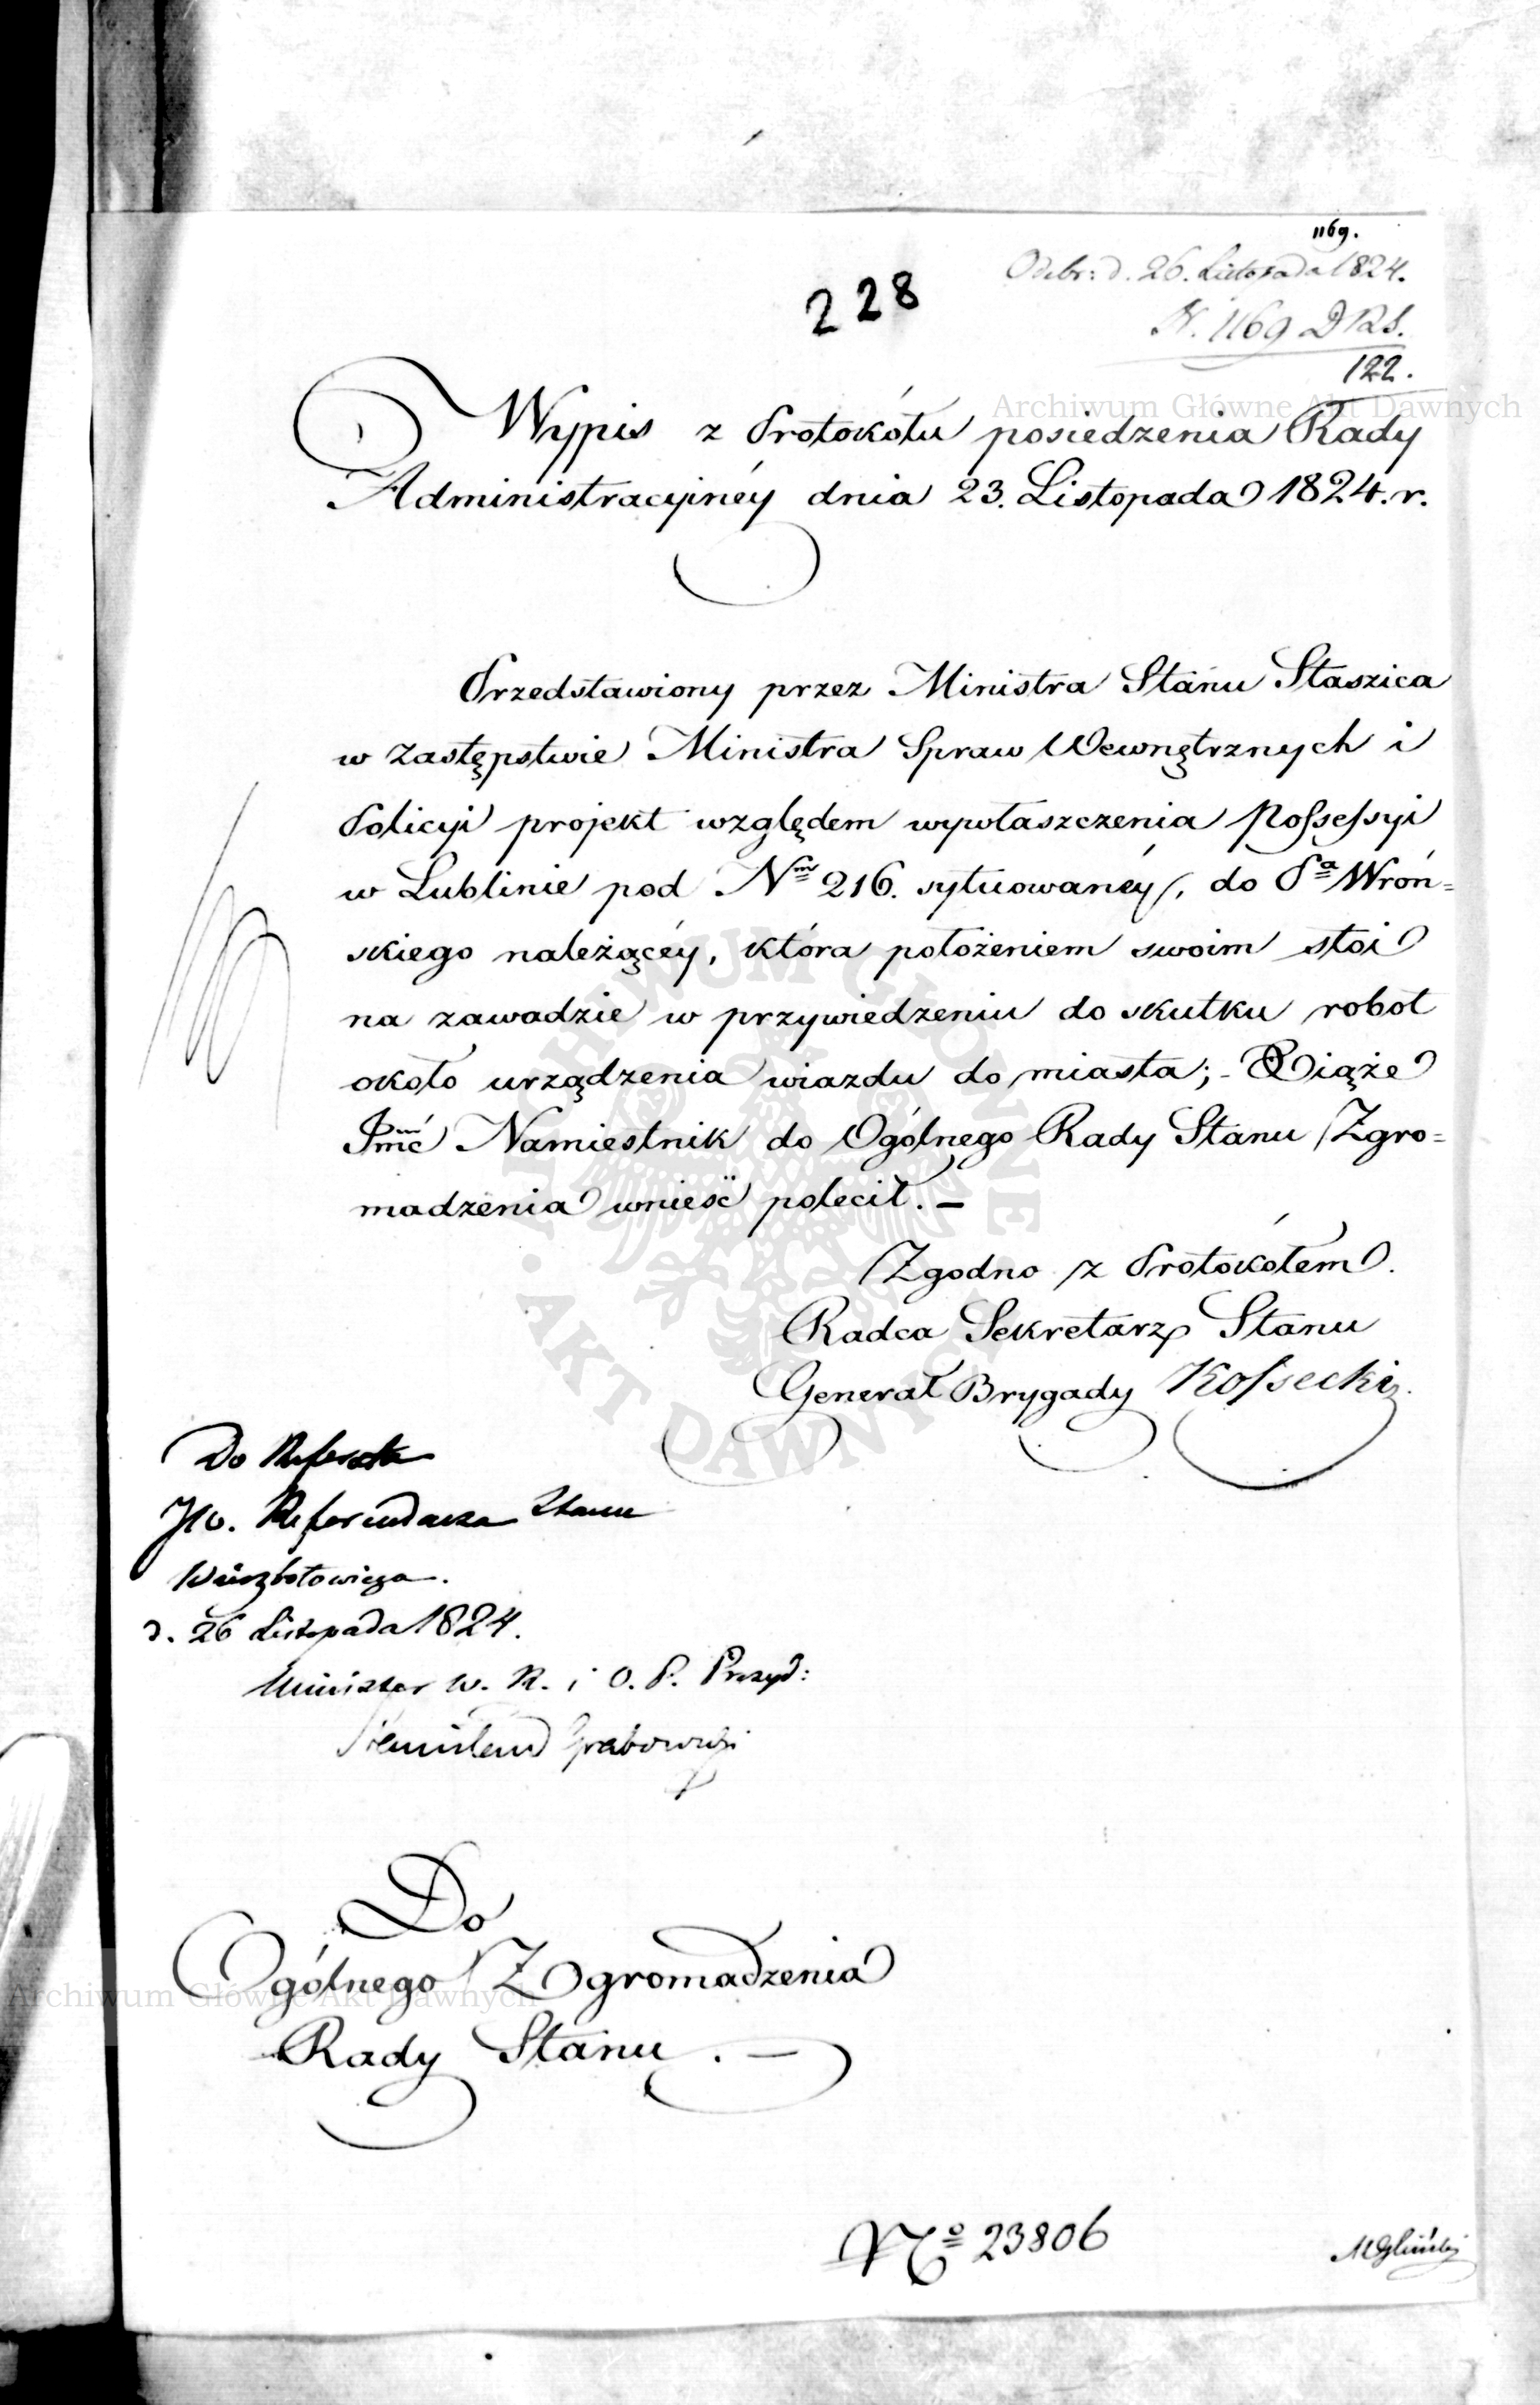 1169.
Odebr: d. 26. Listopada 1824.
N. 1169 D R S.
122.
228
Wypis z Protokółu posiedzenia Rady
Administracyinéy dnia 23. Listopada 1824. r.
Przedstawiony przez Ministra Stanu Staszica
w zastępstwie Ministra Spraw Wewnętrznych i
Policyi projekt względem wywłaszczenia Possessyi
w Lublinie pod Nm 216. sytuowanéy, do Pa Wroń=
skiego należącéy, która położeniem swoim stoi
na zawadzie w przywiedzeniu do skutku robot
około urządzenia wiazdu do miasta; - Xiąże
Jmć Namiestnik do Ogólnego Rady Stanu Zgro=
madzenia wnieść polecił. —
Zgodno z Protokółem.
Radca Sekretarz Stanu
Generał Brygady Kossecki
Do Referatu
JW. Referendarza Stanu
d. 26 Listopada 1824.
Minister W. R. i O. P. Prezyd:
Stanisław Grabowski
Do
Ogólnego Zgromadzenia
Rady Stanu. —
No 23806
MGliński
Archiwum Główne Akt Dawnych
Archiwum Główne Akt Dawnych
ARCHIWUM GŁÓWNE · AKT DAWNYCH ·